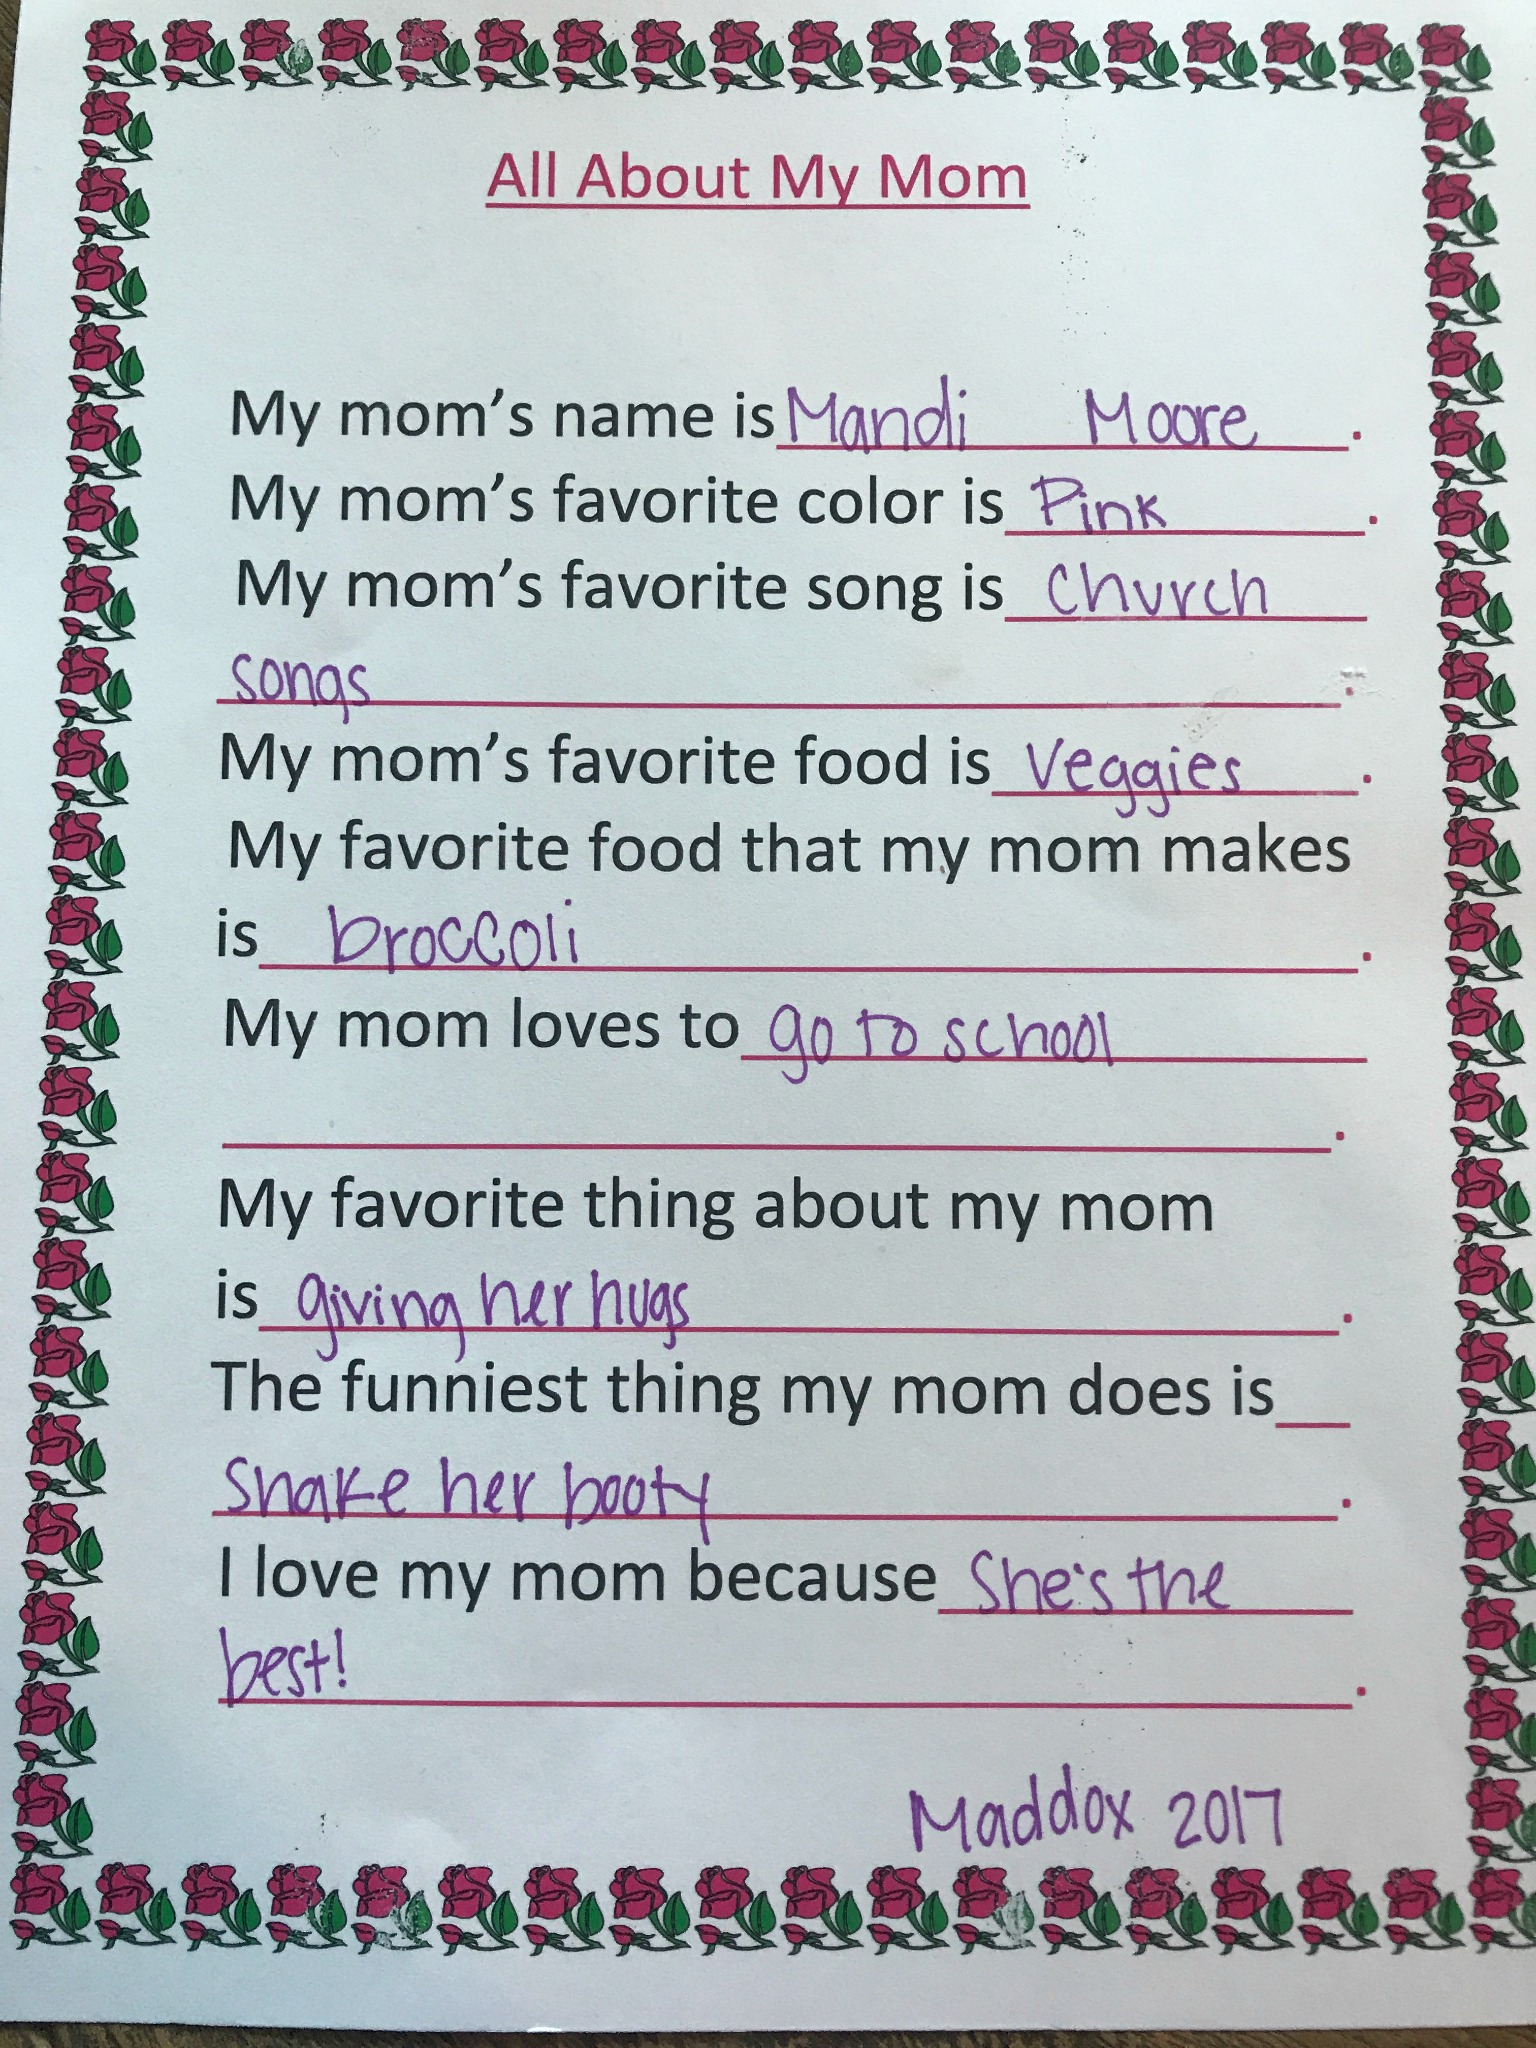 All About My Mom
My mom's name is Mandi Moore.
My mom's favorite color is Pink.
My mom's favorite song is Church
songs.
My mom's favorite food is Veggies.
My favorite food that my mom makes
is broccoli.
My mom loves to go to school
.
My favorite thing about my mom
is giving her hugs.
The funniest thing my mom does is
Shake her booty.
I love my mom because She's the
best!.
Maddox 2017